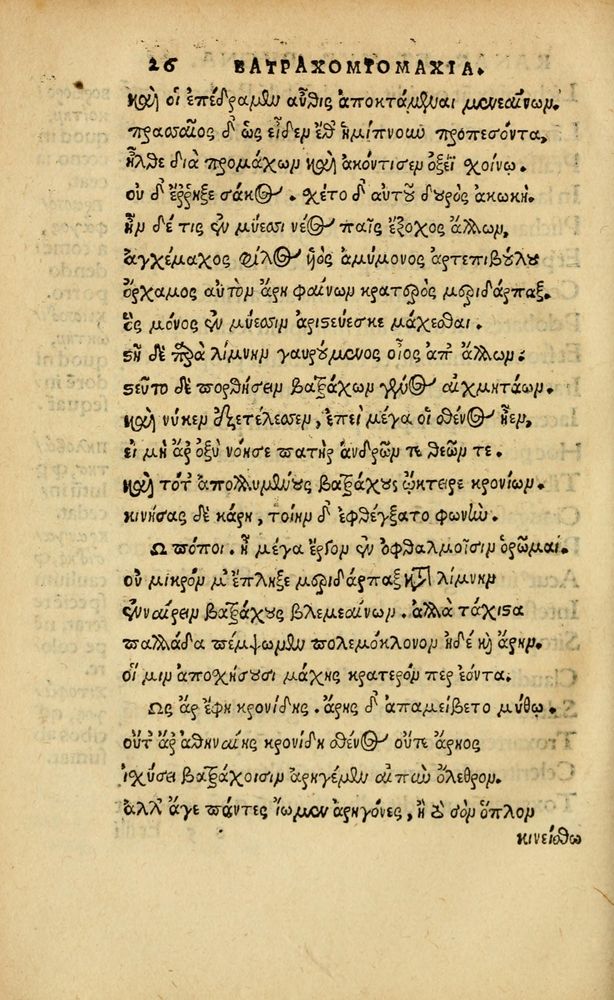 26 ΒΑΤΡΑΧΟΜΥΟΜΑΧΙΑ.
καὶ οἱ ἐπέδραμεν αὖθις ἀποκτάμεναι μενεαίνων.
πρασσαῖος δ' ὡς εἶδεν ἔθ' ἡμίπνουν προπεσόντα,
ἦλθε διὰ προμάχων καὶ ἀκόντισεν ὀξέϊ χοίνῳ.
οὐ δ' ἔῤῥηξε σάκος. χέτο δ' αὐτοῦ δουρὸς ἀκωκή.
ἦν δέ τις ἐν μύεσσι νέος παῖς ἔξοχος ἄλλων,
ἀγχέμαχος φίλος ἡὸς ἀμύμονος ἀρτεπιβούλου
ὄρχαμος αὐτὸν ἄρη φαίνων κρατερὸς μεριδάρπαξ.
ὃς μόνος ἐν μύεσσιν ἀριστεύεσκε μάχεσθαι.
στῆ δὲ παρὰ λίμνην γαυρούμενος οἶος ἀπ' ἄλλων.
στεῦτο δὲ πορθήσειν βατράχων γένος αἰχμητάων.
καὶ νύκεν ἐξετέλεσσεν, ἐπεὶ μέγα οἱ σθένος ἦεν,
εἰ μὴ ἄρ' ὀξὺ νόησε πατὴρ ἀνδρῶν τε θεῶν τε.
καὶ τότ' ἀπολλυμένους βατράχους ᾤκτειρε κρονίων.
κινήσας δὲ κάρη, τοίην δ' ἐφθέγξατο φωνήν.
Ω πόποι. ἦ μέγα ἔργον ἐν ὀφθαλμοῖσιν ὁρῶμαι.
οὐ μικρόν μ' ἔπληξε μεριδάρπαξ κατὰ λίμνην
ἐναίρειν βατράχους βλεμεαίνων. ἀλλὰ τάχιστα
παλλάδα πέμψωμεν πολεμόκλονον ἠδὲ καὶ ἄρην.
οἵ μιν ἀποσχήσουσι μάχης κρατερόν περ ἐόντα.
Ως ἄρ' ἔφη κρονίδης. ἄρης δ' ἀπαμείβετο μύθῳ.
οὔτ' ἄρ' ἀθηναίης κρονίδη σθένος οὔτε ἄρηος
ἰσχύσει βατράχοισιν ἀρηγέμεν αἰπὺν ὄλεθρον.
ἀλλ' ἄγε πάντες ἴωμεν ἀρηγόνες, ἢ τὸ σὸν ὅπλον
κινείσθω